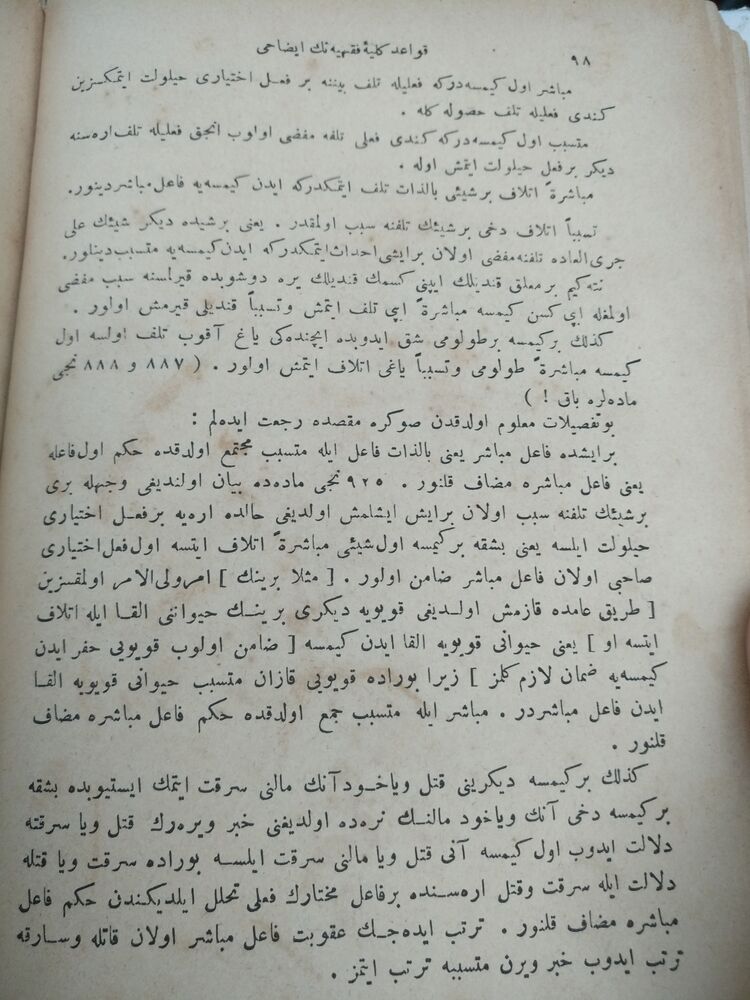 ٩٨
قواعد كلیهٔ فقهیه‌نك ایضاحی
مباشر اول كیمسه‌دركه فعلیله تلف بیننه بر فعل اختیاری حیلولت ایتمكسزین
كندی فعلیله تلف حصوله كله .
متسبب اول كیمسه‌دركه كندی فعلی تلفه مفضی اولوب انجق فعلیله تلف اره‌سنه
دیكر برفعل حیلولت ایتمش اوله .
مباشرةً اتلاف برشیئی بالذات تلف ایتمكدركه ایدن كیمسه‌یه فاعل مباشر دینور.
تسبباً اتلاف دخی برشیئك تلفنه سبب اولمقدر . یعنی برشیده دیكر شیئك علی
جری العاده تلفنه مفضی اولان برایشی احداث ایتمكدركه ایدن كیمسه‌یه متسبب دینلور.
نته‌كیم برمعلق قندیلك ایپنی كسمك قندیلك یره دوشوبده قیرلمسنه سبب مفضی
اولمغله ایپی كسن كیمسه مباشرةً ایپی تلف ایتمش وتسبباً قندیلی قیرمش اولور .
كذلك بركیمسه برطولومی شق ایدوبده ایچنده‌كی یاغ آقوب تلف اولسه اول
كیمسه مباشرةً طولومی وتسبباً یاغی اتلاف ایتمش اولور . ( ٨٨٧ و ٨٨٨ نجی
ماده‌لره باق ! )
بوتفصیلات معلوم اولدقدن صوكره مقصده رجعت ایده‌لم :
برایشده فاعل مباشر یعنی بالذات فاعل ایله متسبب مجتمع اولدقده حكم اول فاعله
یعنی فاعل مباشره مضاف قلنور . ٩٢٥ نجی ماده‌ده بیان اولندیغی وجهله بری
برشیئك تلفنه سبب اولان برایش ایشلمش اولدیغی حالده ارەیه بر فعل اختیاری
حیلولت ایلسه یعنی بشقه بركیمسه اول شیئی مباشرةً اتلاف ایتسه اول فعل اختیاری
صاحبی اولان فاعل مباشر ضامن اولور . [ مثلا برینك ] امر ولی الامر اولمقسزین
[ طریق عامده قازمش اولدیغی قویویه دیكری برینك حیواننی القا ایله اتلاف
ایتسه او ] یعنی حیوانی قویویه القا ایدن كیمسه [ ضامن اولوب قویویی حفر ایدن
كیمسه‌یه ضمان لازم كلمز ] زیرا بوراده قویویی قازان متسبب حیوانی قویویه القا
ایدن فاعل مباشردر . مباشر ایله متسبب جمع اولدقده حكم فاعل مباشره مضاف
قلنور .
كذلك بركیمسه دیكرینی قتل ویاخود آنك مالنی سرقت ایتمك ایستیوبده بشقه
بركیمسه دخی آنك ویاخود مالنك نره‌ده اولدیغنی خبر ویره‌رك قتل ویا سرقته
دلالت ایدوب اول كیمسه آنی قتل ویا مالنی سرقت ایلسه بوراده سرقت ویا قتله
دلالت ایله سرقت وقتل اره‌سنده برفاعل مختارك فعلی تخلل ایلدیكندن حكم فاعل
مباشره مضاف قلنور . ترتب ایده‌جك عقوبت فاعل مباشر اولان قاتله وسارقه
ترتب ایدوب خبر ویرن متسببه ترتب ایتمز .